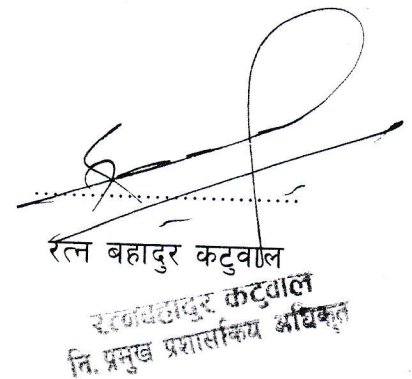 रत्न बहादुर कटुवाल
रत्नबहादुर कटुवाल
नि. प्रमुख प्रशासकिय अधिकृत